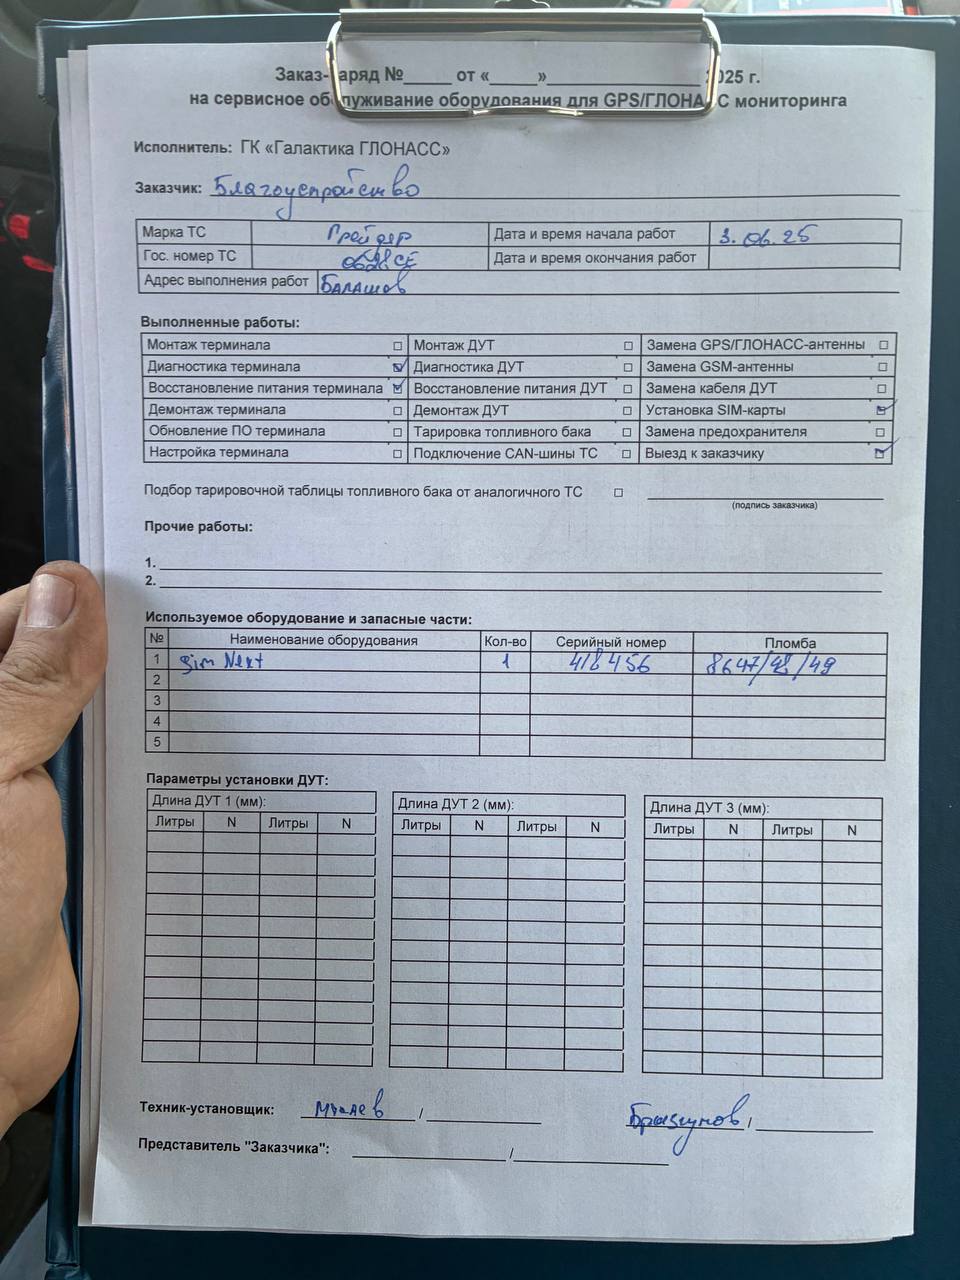 Заказ-наряд №_____ от «_____»________________ 2025 г.
на сервисное обслуживание оборудования для GPS/ГЛОНАСС мониторинга
Исполнитель: ГК «Галактика ГЛОНАСС»
Заказчик: Благоустройство
Марка ТС Грейдер Дата и время начала работ 3.06.25
Гос. номер ТС Дата и время окончания работ
Адрес выполнения работ Балашов
Выполненные работы:
Монтаж терминала ☐ Монтаж ДУТ ☐ Замена GPS/ГЛОНАСС-антенны ☐
Диагностика терминала ☑ Диагностика ДУТ ☐ Замена GSM-антенны ☐
Восстановление питания терминала ☑ Восстановление питания ДУТ ☐ Замена кабеля ДУТ ☐
Демонтаж терминала ☐ Демонтаж ДУТ ☐ Установка SIM-карты ☑
Обновление ПО терминала ☐ Тарировка топливного бака ☐ Замена предохранителя ☐
Настройка терминала ☐ Подключение CAN-шины ТС ☐ Выезд к заказчику ☑
Подбор тарировочной таблицы топливного бака от аналогичного ТС ☐
(подпись заказчика)
Прочие работы:
1.
2.
Используемое оборудование и запасные части:
№ Наименование оборудования Кол-во Серийный номер Пломба
1 Sim Next 1 418456 8647/48/49
2
3
4
5
Параметры установки ДУТ:
Длина ДУТ 1 (мм): Длина ДУТ 2 (мм): Длина ДУТ 3 (мм):
Литры N Литры N Литры N Литры N Литры N Литры N
Техник-установщик: / Брызгунов /
Представитель "Заказчика": /